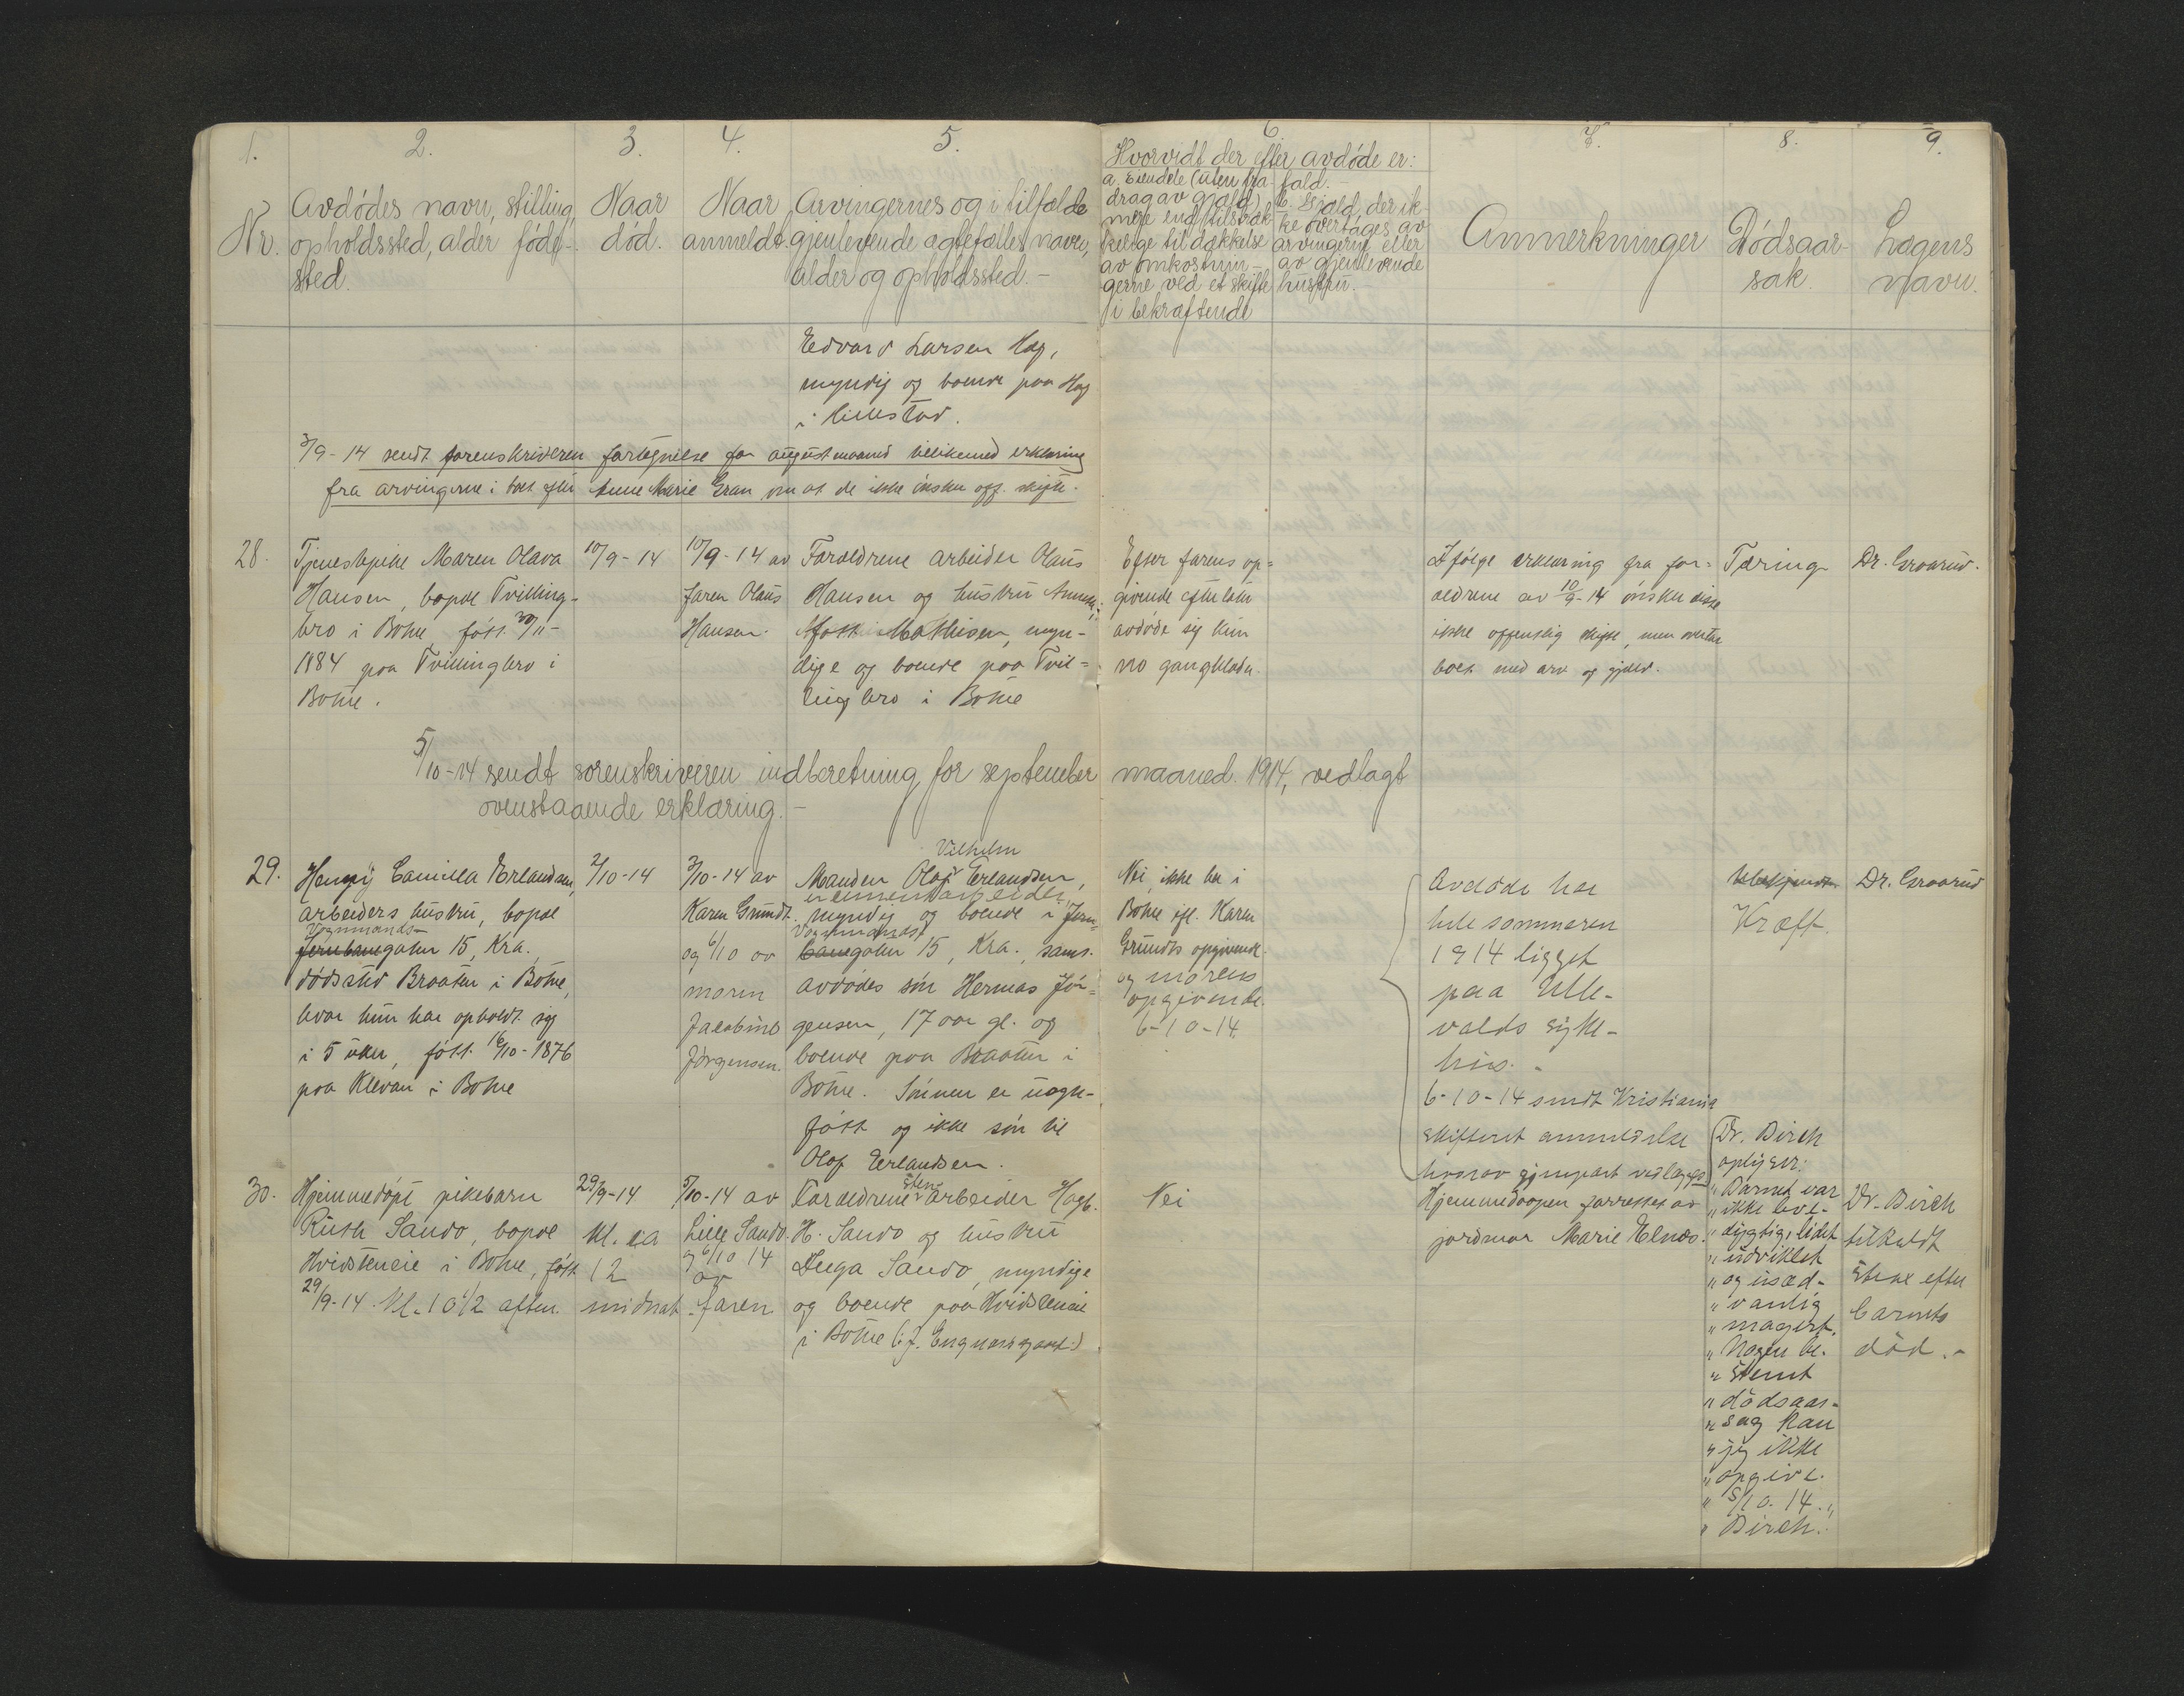 1.
2.
3.
4.
5.
6.
7.
8.
9.
Nr.
Avdødes navn, stilling,
opholdssted, alder føde-
sted.
Naar
død.
Naar
anmeldt.
Arvingernes og i tilfælde
gjenlevende ægtefælles navn,
alder og opholdssted. -
Hvorvidt der efter avdøde er:
a. Eiendele (uten fra-
drag av gjæld)
mere end tilstræk
kelige til dækkelse
av omkostnin-
gerne ved et skifte
i bekræftende
fald. -
b. Gjæld, der ik-
ke overtages av
arvingerne eller
av gjenlevende
hustru. -
Anmerkninger
Dødsaar-
sak.
Lægens
navn.
Edvard Larsen Hag,
myndig og boende paa Hag
i
3/9-14 sendt sorenskriveren fortegnelse for august maaned tillikemed erklæring
fra arvingerne i boet efter Anne Marie Gran om at de ikke ønsker off. skifte.
28.
Tjenestepike Maren Olava
Hansen, bopæl Tvilling-
bro i Botne født 30/11-
1884 paa Tvillingbro i
Botne.
10/9-14
10/9-14 av
faren Olaus
Hansen.
Forældrene arbeider Olaus
Hansen og hustru
født Mathisen, myn-
dige og boende paa Tvil-
lingbro i Botne
Efter farens op-
givende efterlater
avdøde sig kun
no gangklæder.
Ifølge erklæring fra for-
ældrene av 10/9-14 ønsker disse
ikke offentlig skifte, men overtar
boet med arv og gjæld.
Tæring
Dr. Graarud.
5/10-14 sendt sorenskriveren indberetning for september maaned 1914, vedlagt
ovenstaaende erklæring. -
29.
Henny Camilla Erlandsen,
arbeiders hustru, bopæl
Vognmands-
Jernbanegaten 15, Kra.
dødssted Braaten i Botne,
hvor hun har opholdt sig
i 5 uker, født 16/10-1876
paa Klevan i Botne
2/10-14
3/10-14 av
Karen Grundt.
og 6/10 av
moren
Jacobine
Jørgensen.
Vilhelm
Manden Olaf Erlandsen,
er cementarbeider
myndig og boende i Jern-
Vognmands
banegaten 15, Kra., samt
avdødes søn Hermas Jør-
gensen, 17 aar gl. og
boende paa Braaten i
Botne. Sønnen er uegte-
født og ikke søn til
Olaf Erlandsen.
Nei, ikke her i
Botne ifl. Karen
Grundts opgivende
og morens
opgivende.
6-10-14.
Avdøde har
hele sommeren
1914 ligget
paa Ulle-
valds syke-
hus. -
6-10-14 sendt Kristiania
skifteret anmeldelse
hvorav gjenpart vedlægges
Ubekjendt
Kræft.
Dr. Graarud
30.
Hjemmedøpt pikebarn
Ruth Sando, bopæl
Hvidsteneie i Botne, født
29/9-14. Kl. 10 1/2 aften
29/9-14
Kl. ca
12
midnat
5/10-14 av
Lille Sando.
og 6/10 14
av
faren
Sten-
Forældrene arbeider Hagb.
H. Sando og hustru
Sando, myndige
og boende paa Hvidsteneie
i Botne
Nei
Hjemmedaapen forrettet av
jordmor Marie Elnæs.
Dr. Birch
oplyser:
" Barnet var
" ikke leve-
" dygtig, lidet
" udviklet
" og usæd-
" vanlig
" magert.
" Nogen be-
" stemt
" dødsaar-
" sag kan
" jeg ikke
" opgive.
" 5/10-14.,
" Birch.
Dr. Birch
tilkaldt
strax efter
barnets
død. -